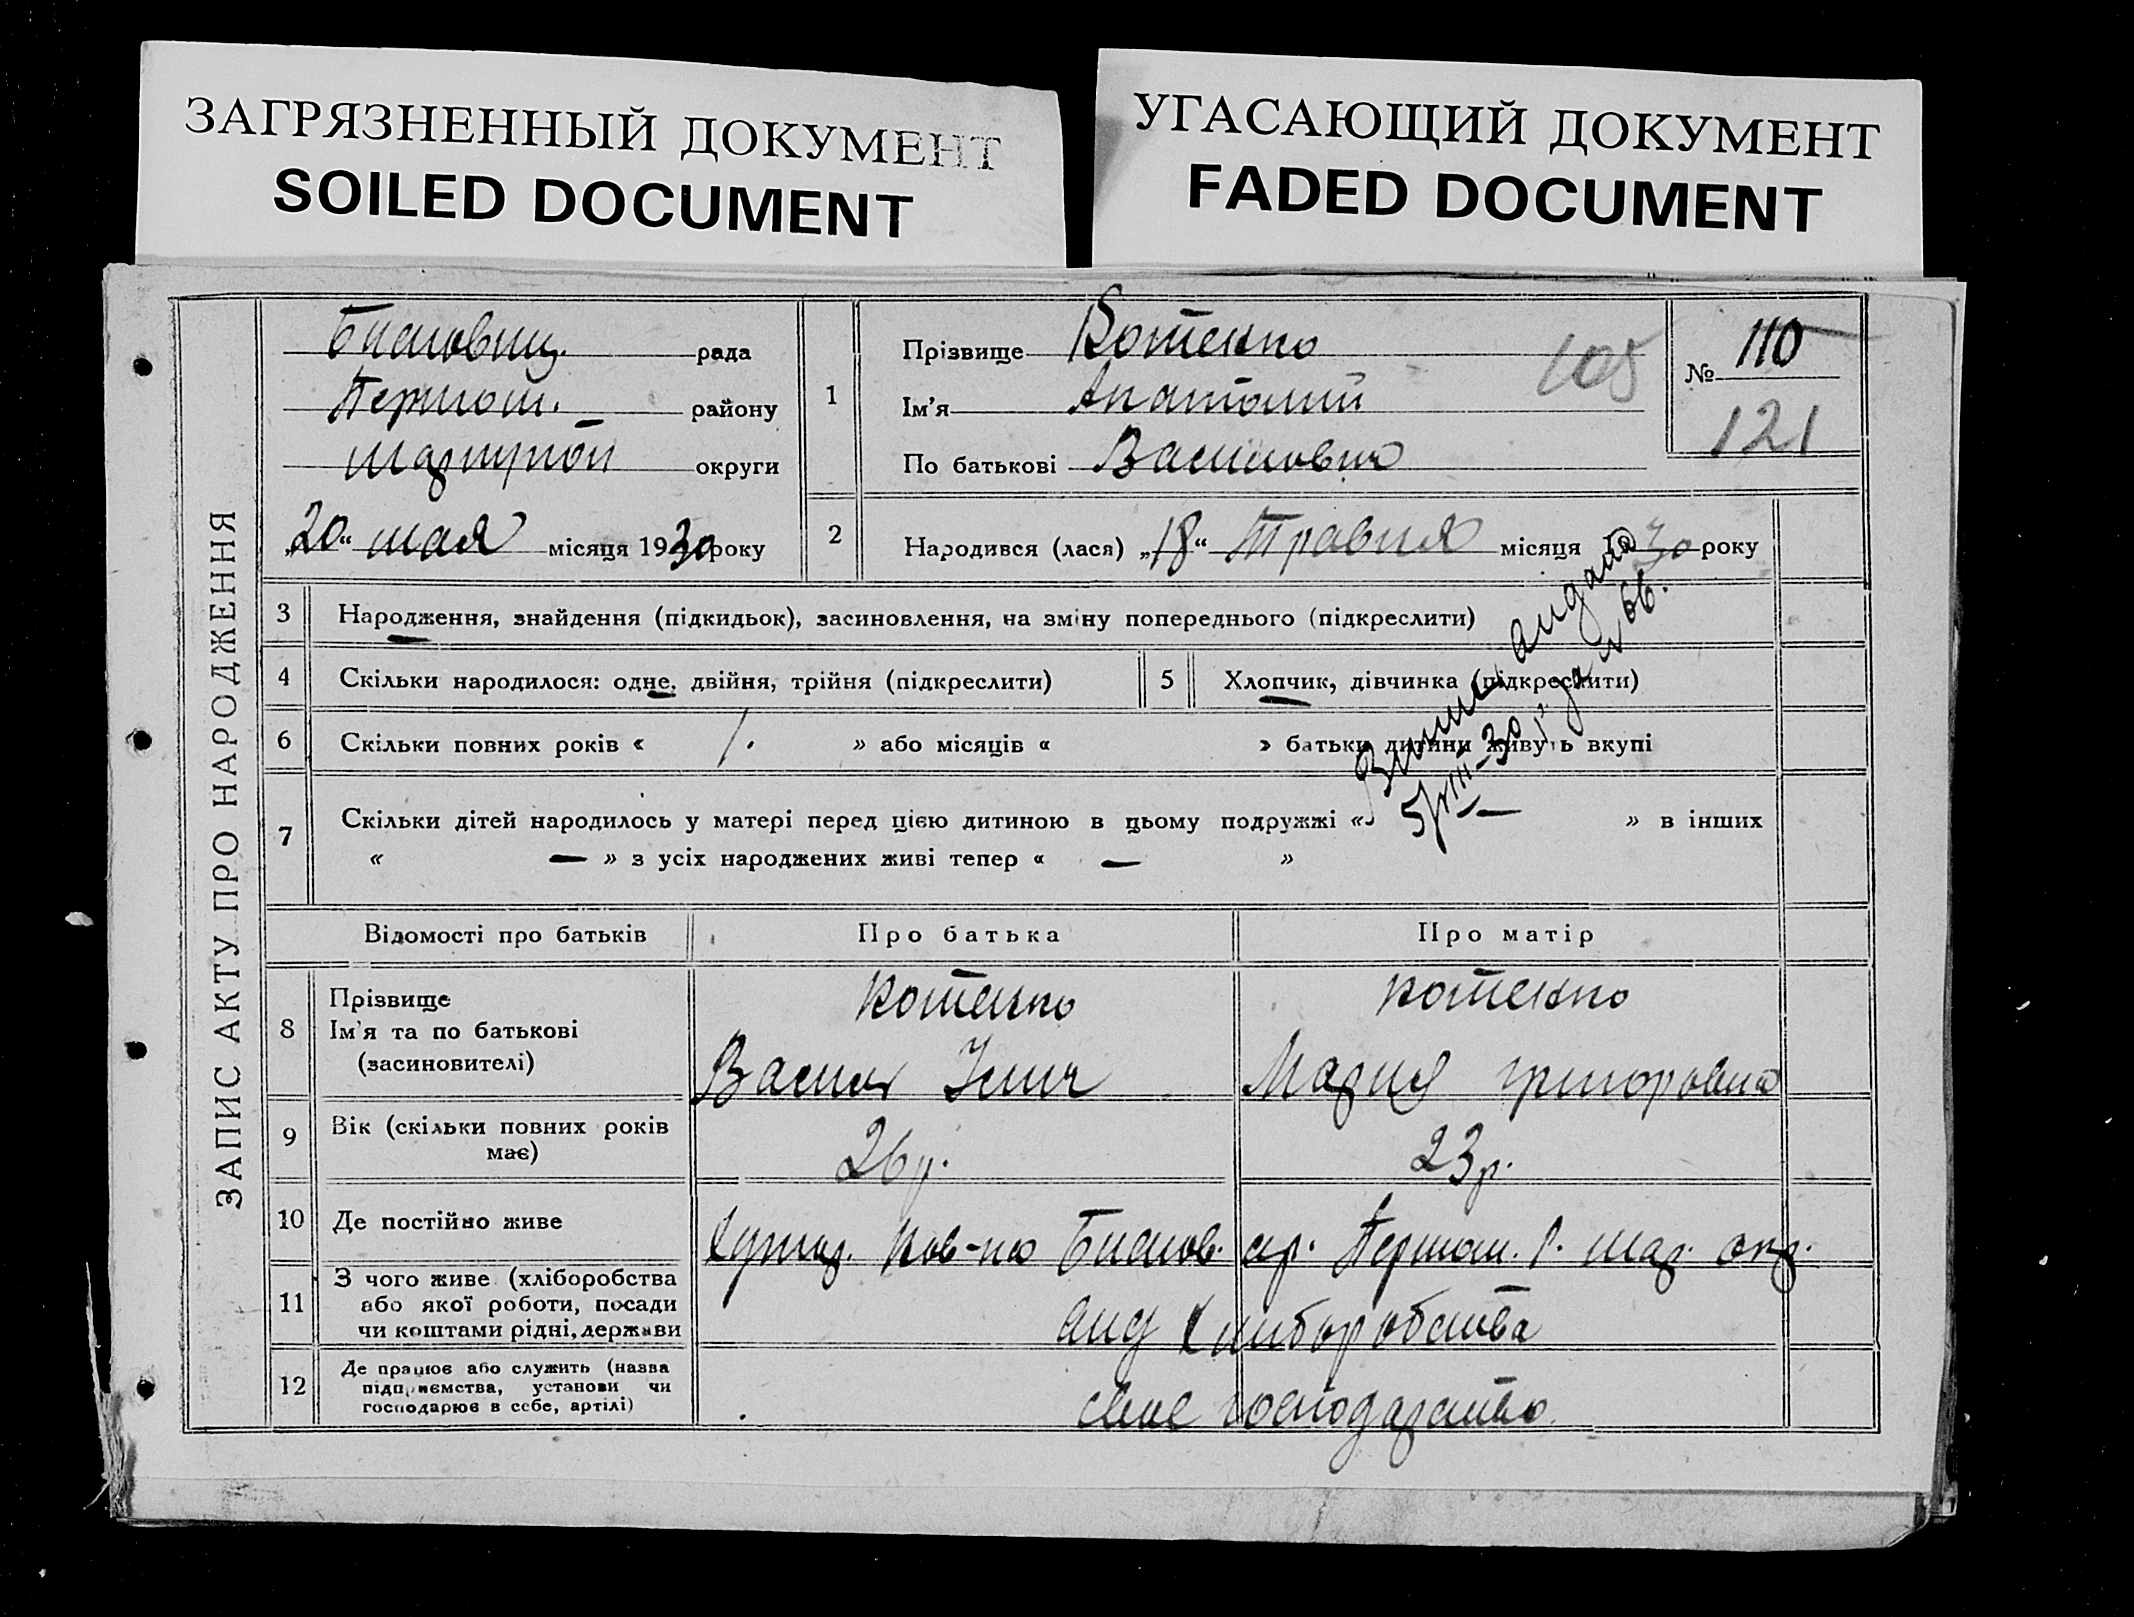 ЗАГРЯЗНЕННЫЙ ДОКУМЕНТ
SOILED DOCUMENT
УГАСАЮЩИЙ ДОКУМЕНТ
FADED DOCUMENT
ЗАПИС АКТУ ПРО НАРОДЖЕННЯ
рада
Першот. району
Маріупол округи
„20“ мая місяця 1930 року
1
Прізвище Котенко
Ім'я Анатолий
По батькові
105
№ 110
121
2 Народився (лася) „18“ Травня місяця 30 року
3 Народження, знайдення (підкидьок), засиновлення, на зміну попереднього (підкреслити)
4 Скільки народилося: одне, двійня, трійня (підкреслити)
5 Хлопчик, дівчинка (підкреслити)
6 Скільки повних років « 1. » або місяців « » батьки дитини живуть вкупі
7 Скільки дітей народилось у матері перед цією дитиною в цьому подружжі « — » в інших
« — » з усіх народжених живі тепер « — »
5/VIII-30 р. за № 66.
Відомості про батьків Про батька Про матір
8 Прізвище
Ім'я та по батькові
(засиновителі)
Котенко
Котенко
Мария Григоровна
9 Вік (скільки повних років
має)
26 р.
23 р.
10 Де постійно живе
11 З чого живе (хліборобства
або якої роботи, посади
чи коштами рідні, держави
хліборобства
12 Де працює або служить (назва
підприємства, установи чи
господарює в себе, артілі)
своє господарство